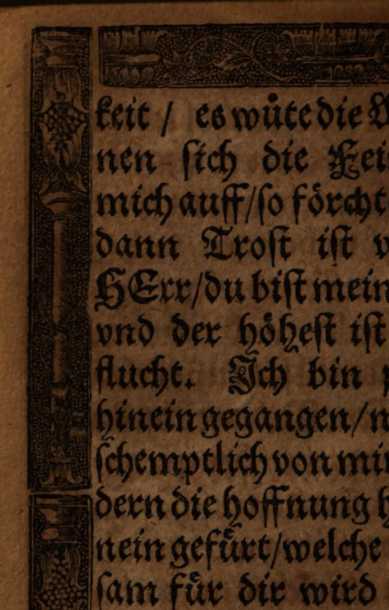 keit / es wuͤte die
nen sich die Fei
mich auff/so foͤrcht
dann Trost ist v
HErr/du bist mein
vnd der hoͤhest ist
flucht. Ich bin
hinein gegangen/n
schemptlich von mir
dern die hoffnung h
nein gefuͤrt/welche
sam fuͤr dir wird